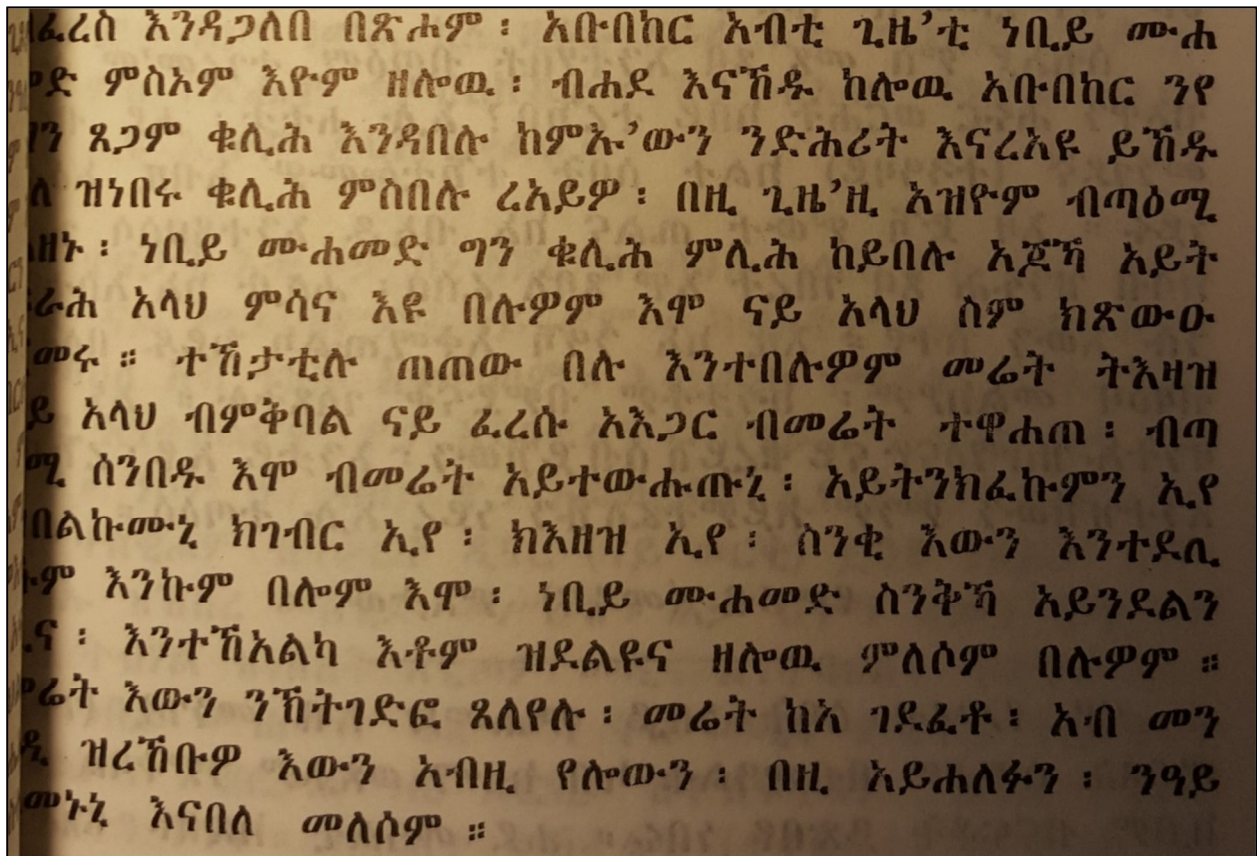 ፈረስ እንዳጋለበ በጽሖም ፡ አቡበከር አብቲ ጊዜ’ቲ ነቢይ ሙሐ
ምስኦም እዮም ዘሎዉ ፡ ብሐደ እናኸዱ ከሎዉ አቡበከር ንየ
ጸጋም ቁሊሕ እንዳበሉ ከምኡ’ውን ንድሕሪት እናረአዩ ይኸዱ
ዝነበሩ ቁሊሕ ምስበሉ ረአይዎ ፡ በዚ ጊዜ’ዚ አዝዮም ብጣዕሚ
ነቢይ ሙሐመድ ግን ቁሊሕ ምሊሕ ከይበሉ አጆኻ አይት
አላህ ምሳና እዩ በሉዎም እሞ ናይ አላህ ስም ክጽውዑ
ተኸታቲሉ ጠጠው በሉ እንተበሉዎም መሬት ትእዛዝ
አላህ ብምቅባል ናይ ፈረሱ አእጋር ብመሬት ተዋሐጠ ፡ ብጣ
ሰንበዱ እሞ ብመሬት አይተውሑጡኒ ፡ አይትንክፈኩምን ኢየ
ክገብር ኢየ ፡ ክእዘዝ ኢየ ፡ ስንቂ እውን እንተደሊ
እንኩም በሎም እሞ ፡ ነቢይ ሙሐመድ ስንቅኻ አይንደልን
እንተኸአልካ እቶም ዝደልዩና ዘሎዉ ምለሶም በሉዎም ።
እውን ንኸትገድፎ ጸለየሉ ፡ መሬት ከአ ገደፈቶ ፡ አብ መን
ዝረኸቡዎ እውን አብዚ የሎውን ፡ በዚ አይሐለፉን ፡ ንዓይ
እናበለ መለሶም ።